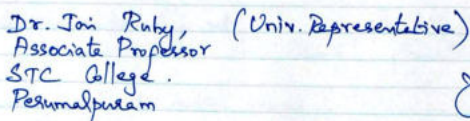 Dr. Jai Ruby, (Univ. Representative)
Associate Professor
STC College.
Perumalpuram